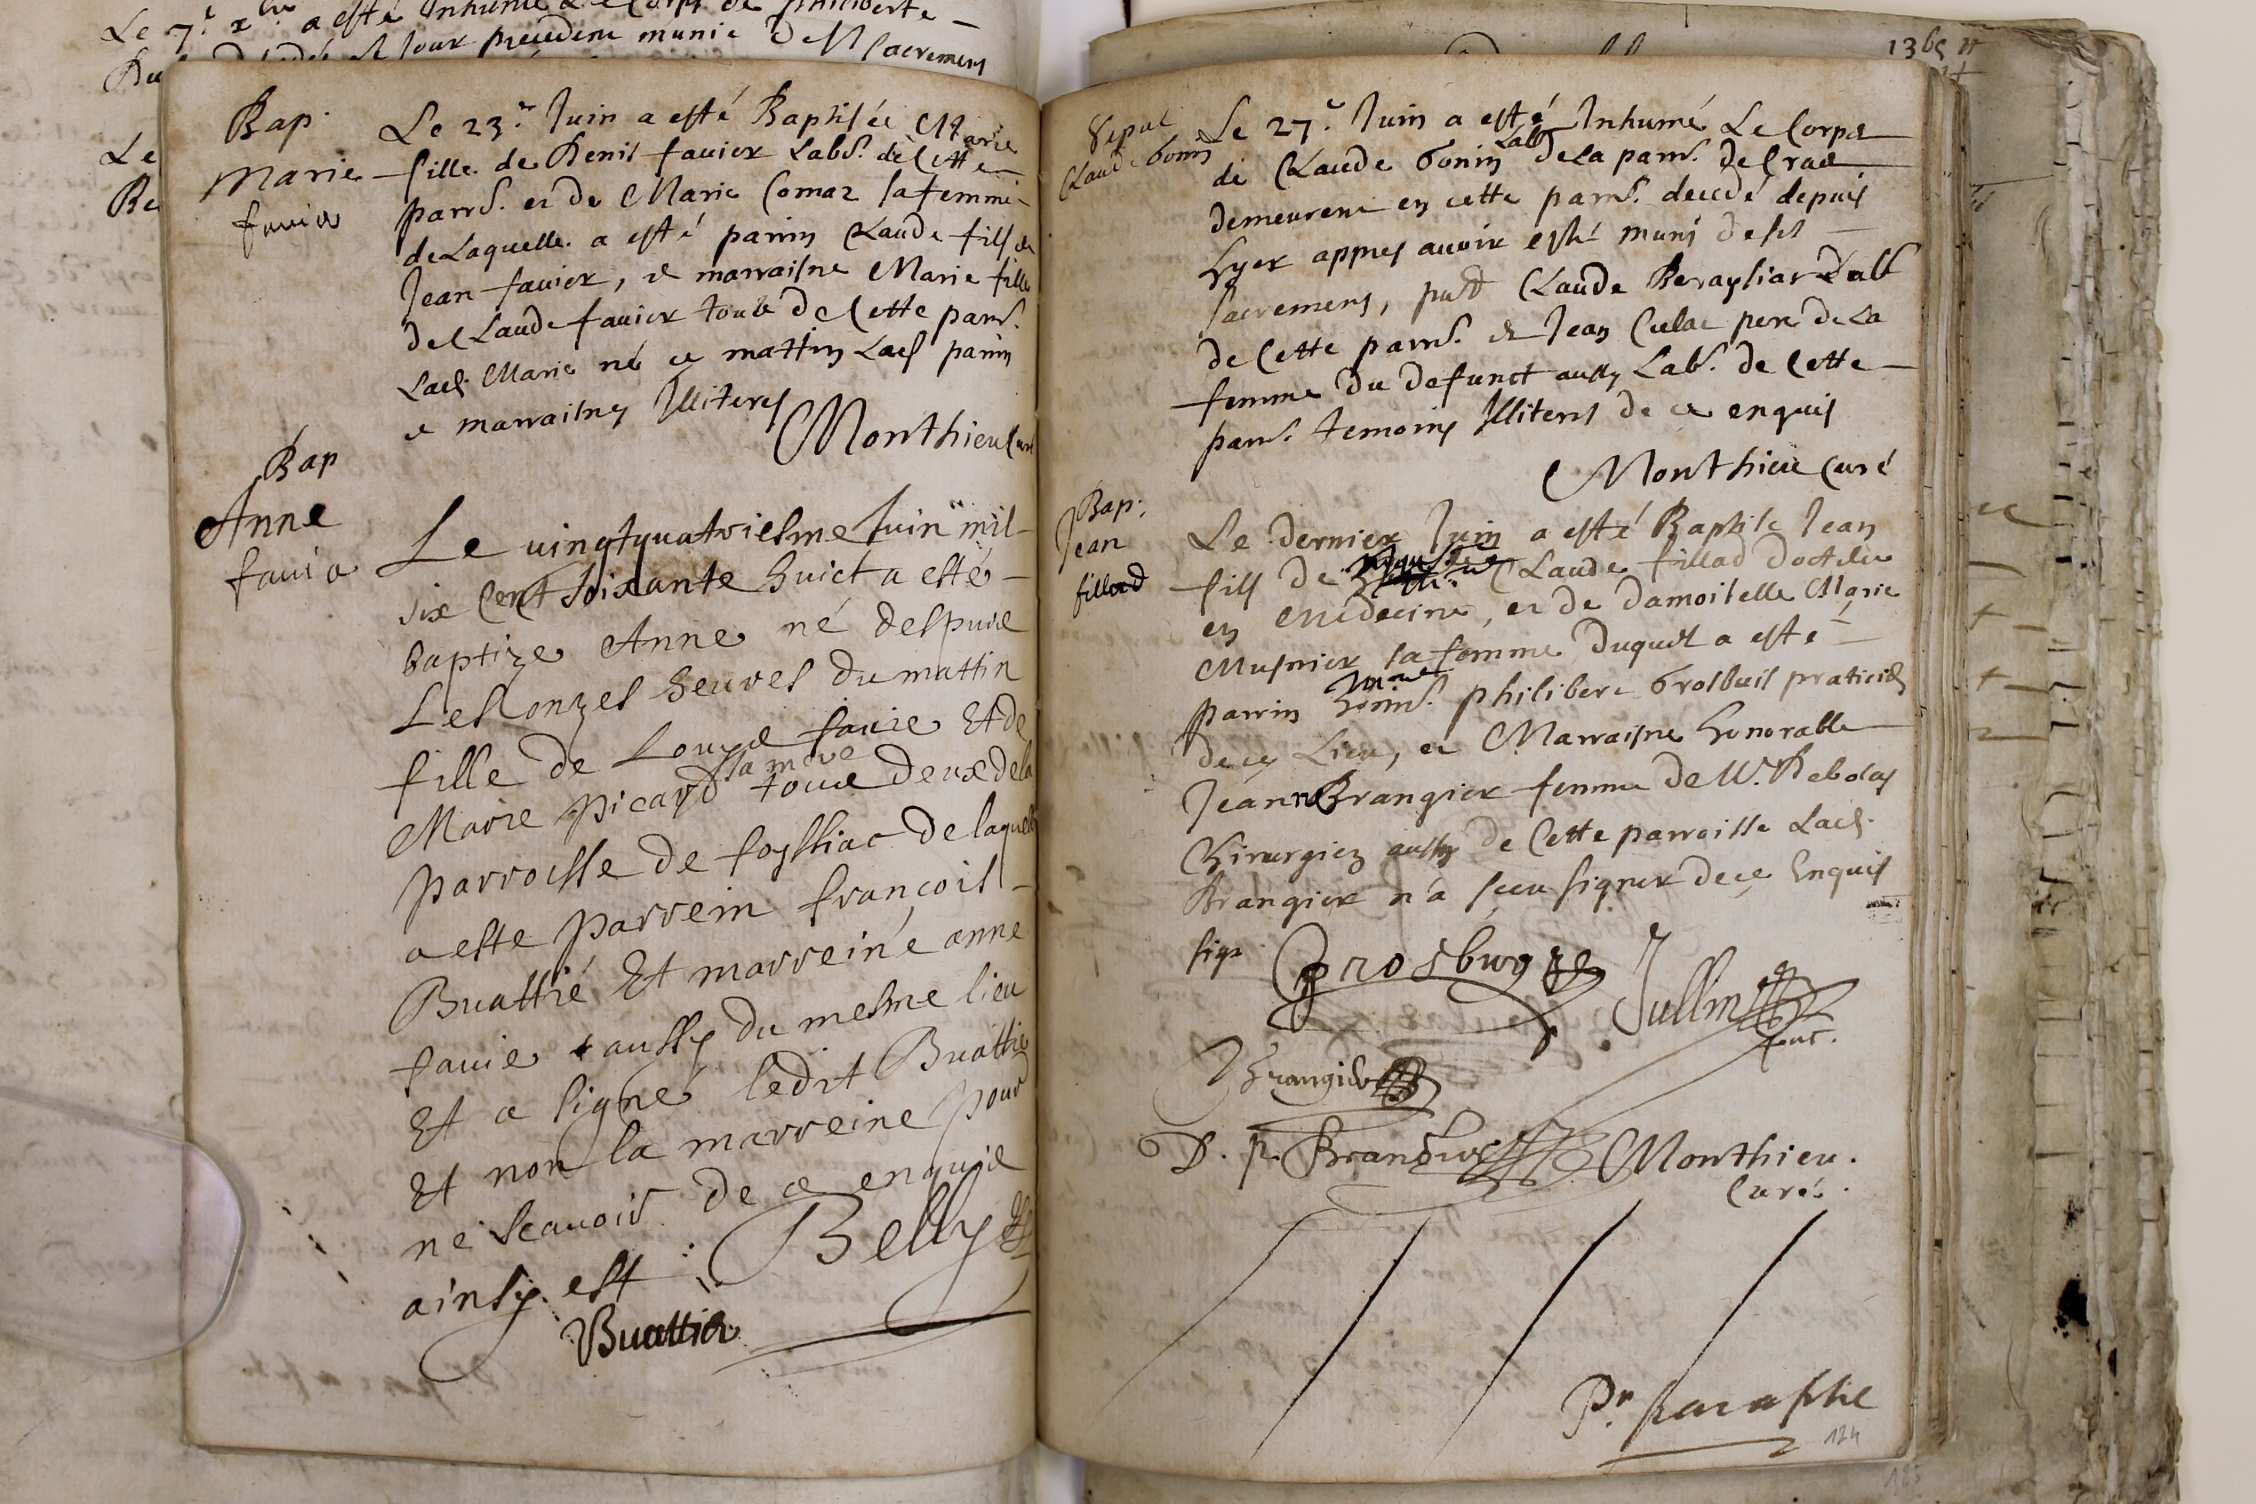 Le 7.e a esté Inhumé Le Corps de philiberte
jour precedent munie des sacremens
Bap.
Marie
favier
Le 23.e Juin a esté Baptisée Marie
fille de Denis favier Lab.r de Cette
parr.e et de Marie Comaz sa femme
de Laquelle a esté parrin Claude fils de
Jean favier, et marraisne Marie fille
de Claude favier tous de Cette parr.e
Lad. Marie né ce mattin Lesd. parrin
et marraisne Illiteres
Monthieu Curé
Bap
Anne
favie
Le vingtquatriesme Juin mil
six Cent soixante huict a esté
baptize Anne né despuis
Les onzes heures du mattin
fille de Louys favie Et de
Marie picard sa mere tous deux de la
parroisse de foyssiac de laquelle
a este parrein françois
Buattié Et marreine anne
favie aussy du mesme lieu
Et a signé ledit Buattie
Et non la marreine pour
ne scavoir de ce enquise
ainsy est : Belly
Buattier
Sepul
Claude Gonin
Le 27.e Juin a esté Inhumé Le Corps
de Claude Gonin Lab.r de la parr.e de Cras
demeurent en cette parr.e decedé depuis
hyer appres avoir esté muni de ses
sacremens, pnt Claude Lab.r
de Cette parr.e et Jean Culas pere de La
femme du defunct aussy Lab.r de Cette
parr.e temoins Illiteres de ce enquis
Monthieu Curé
Bap.
Jean
fillod
Le dernier Juin a esté Baptisé Jean
fils de Claude fillod docteur
en Medecine, et de damoiselle Marie
Musnier sa femme duquel a esté
parrin philibert Grosbuis praticien
de ce Lieu, et Marraisne honorable
Jeanne Brangier femme de M.e Rebolas
Chirurgien aussy de Cette parroisse Lad.
Brangier n'a sceu signer de ce Enquis
sign
Grosbuys Jullin
Brangier
D. p. Brangier Monthieu.
Curé.
Pr. paraphe
124
185